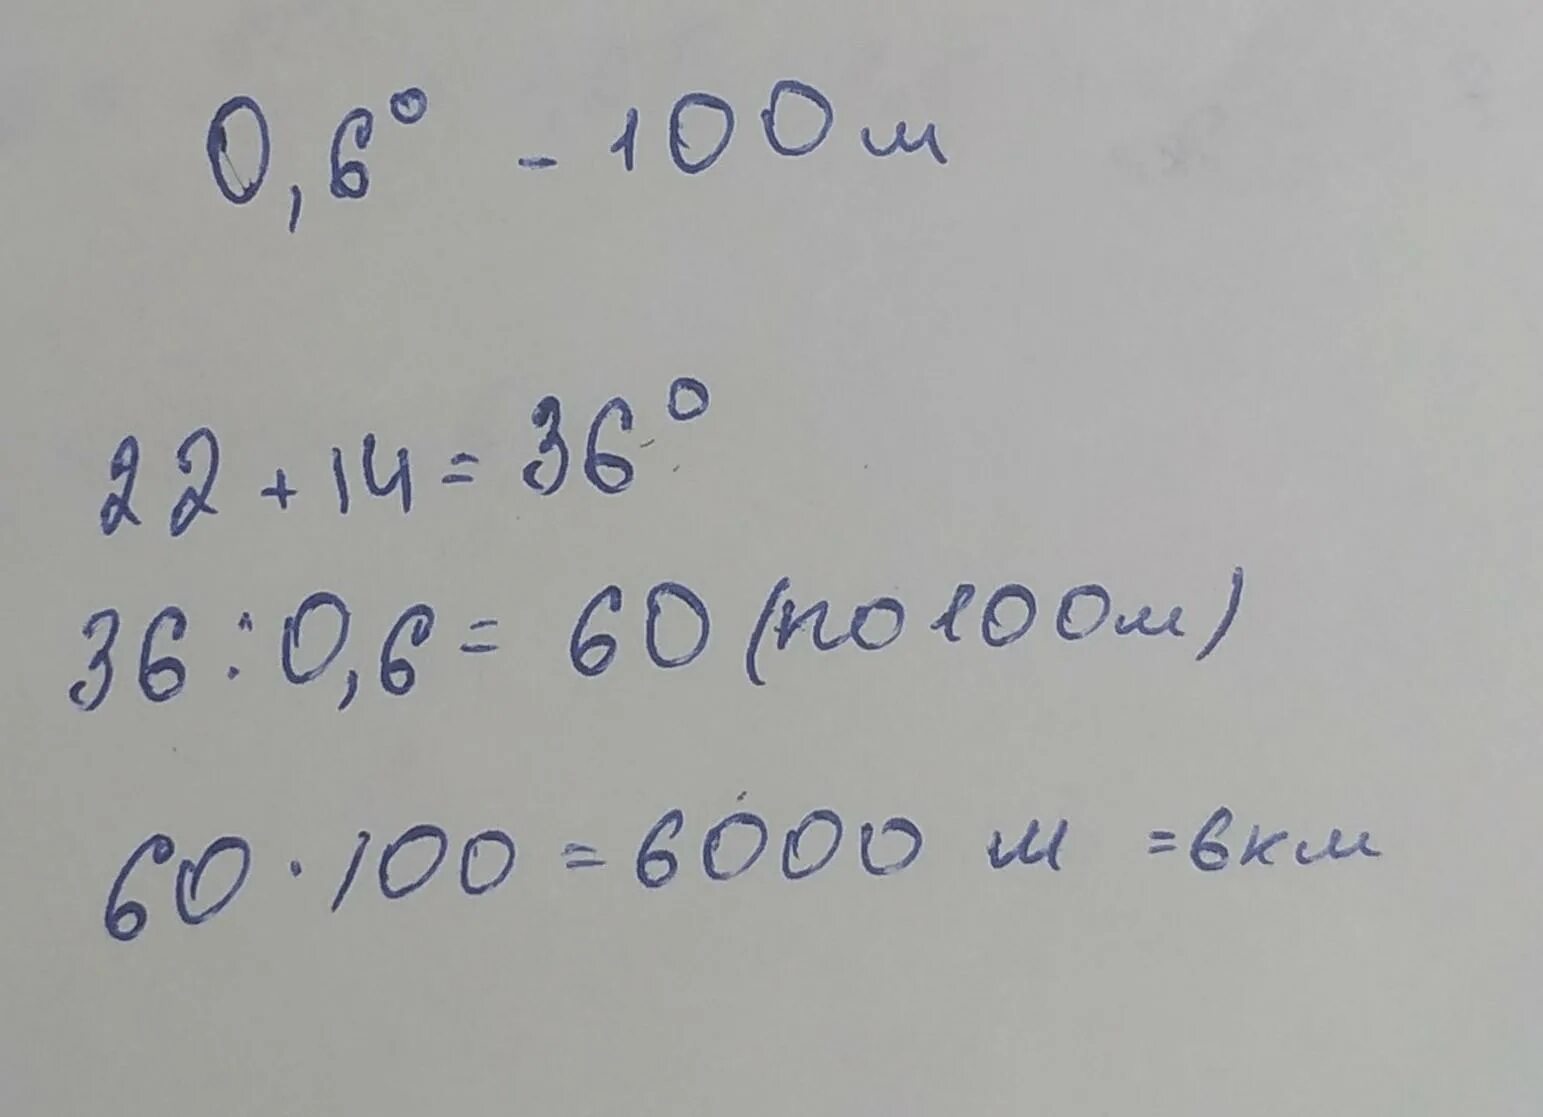 0,6° - 100 м
22 + 14 = 36°
36 : 0,6 = 60 (по 100м)
60 · 100 = 6000 м = 6км